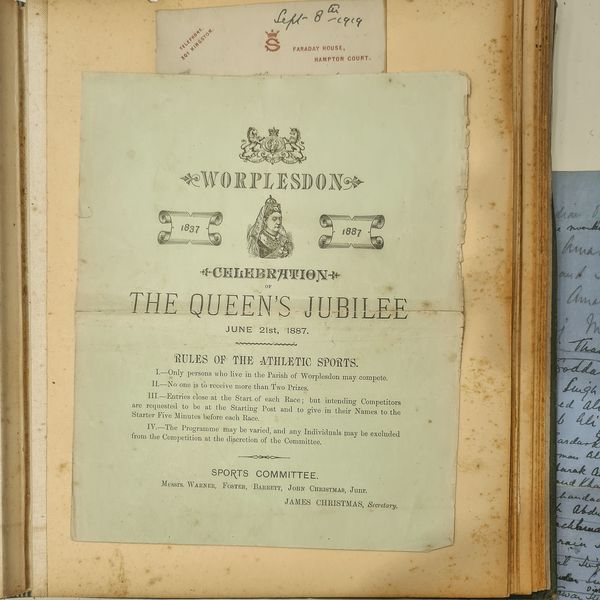 Sept 8th 1919
TELEPHONE,
FARADAY HOUSE,
HAMPTON COURT.
WORPLESDON
1837
1887
CELEBRATION
OF
THE QUEEN'S JUBILEE
JUNE 21st, 1887.
RULES OF THE ATHLETIC SPORTS.
I.—Only persons who live in the Parish of Worplesdon may compete.
II.—No one is to receive more than Two Prizes.
III.—Entries close at the Start of each Race; but intending Competitors
are requested to be at the Starting Post and to give in their Names to the
Starter Five Minutes before each Race.
IV.—The Programme may be varied, and any Individuals may be excluded
from the Competition at the discretion of the Committee.
SPORTS COMMITTEE.
Messrs. Warner, Foster, Barrett, John Christmas, Junr.
JAMES CHRISTMAS, Secretary.